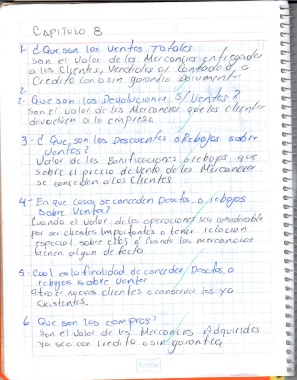 Capitulo 8
1- ¿ Que son las Ventas Totales
son el Valor de las Mercancias entregadas
a los Clientes, Vendidas al Contado o a
Credito con o sin garantia documental
2-
2- Que son las Devoluciones S/ Ventas ?
Son el valor de las Mercancias que los clientes
devuelven a la empresa
3 - ¿ Que son los Descuentos o Rebajas sobre
Ventas ?
Valor de las Bonificaciones o rebajas que
sobre el precio de Venta de las Mercancias
se conceden a los Clientes
4- En que casos se conceden Desctos. o rebajas
sobre Ventas?
Cuando el valor de las operaciones sea considerable
por ser clientes Importantes o tener relacion
especial sobre ellos o Cuando las mercancias
tienen algun defecto
5 - Cual es la finalidad de conceder Desctos. o
rebajas sobre Ventas
atraer nuevos clientes o conservar los ya
existentes.
6 Que son las compras?
Son el Valor de las Mercancias Adquiridas
ya sea con Credito o sin garantia